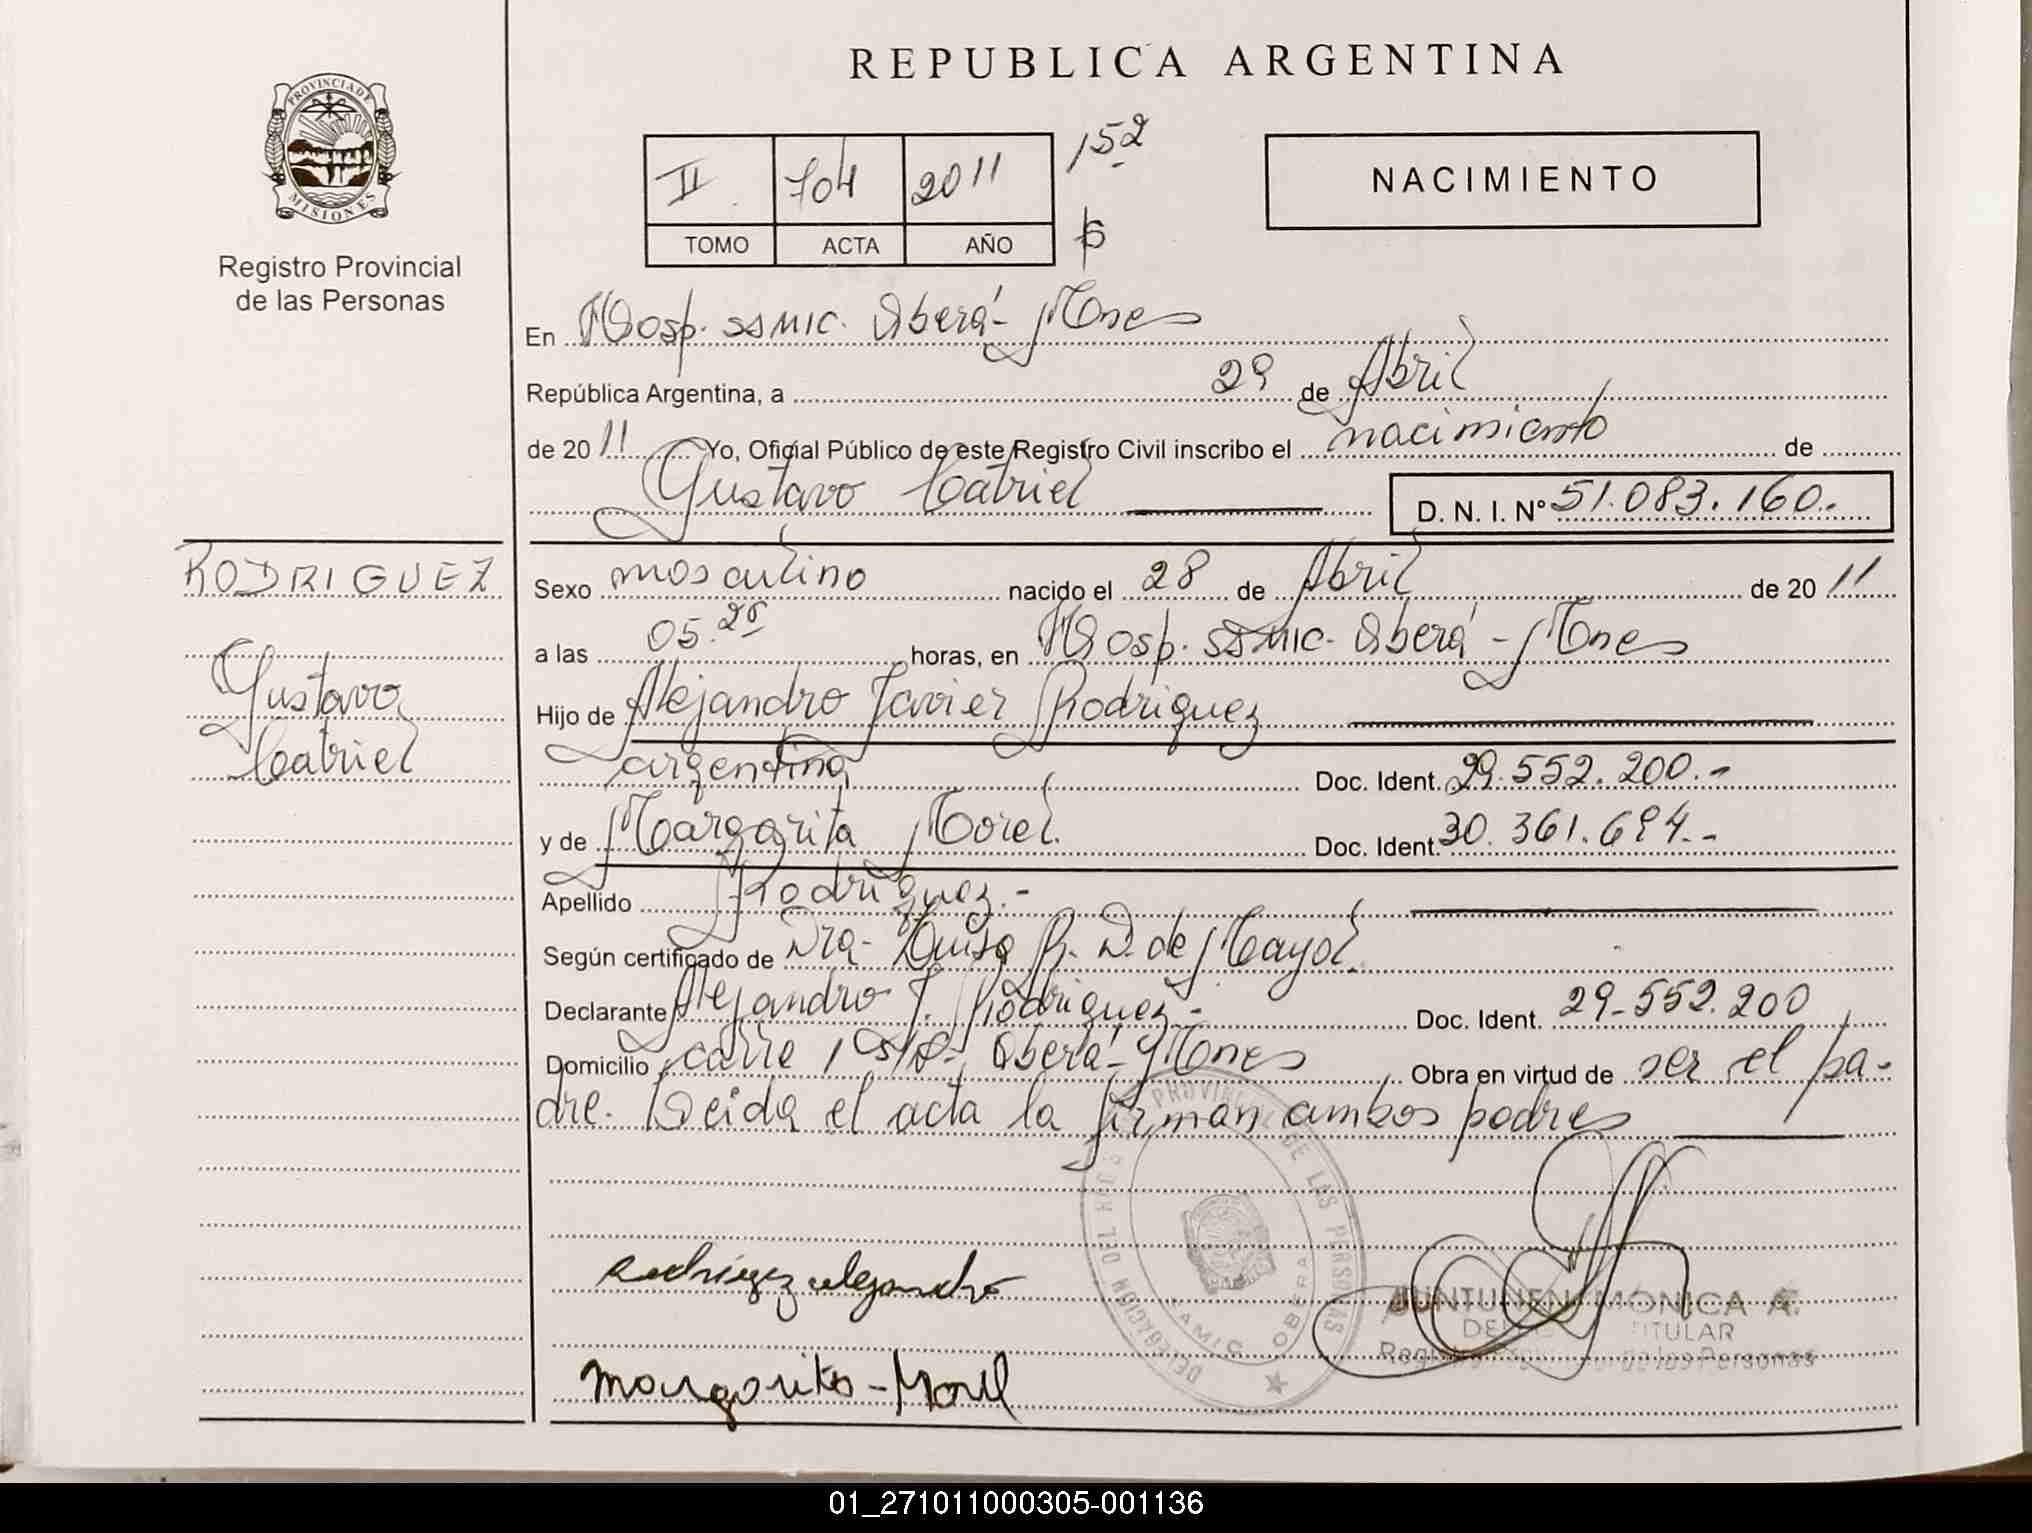 REPUBLICA ARGENTINA
PROVINCIA DE MISIONES
Registro Provincial
de las Personas
II 704 2011 152
TOMO ACTA AÑO
NACIMIENTO
En Hosp. SSMIC. Oberá - Mnes
República Argentina, a 29 de Abril
de 20 11 Yo, Oficial Público de este Registro Civil inscribo el nacimiento de
Gustavo Catriel D. N. I. Nº 51.083.160.-
RODRIGUEZ
Gustavo
Catriel
Sexo masculino nacido el 28 de Abril de 20 11
a las 05.25 horas, en Hosp. SSMIC. Oberá - Mnes
Hijo de Alejandro Javier Rodriguez
argentina Doc. Ident. 29.552.200.-
y de Margarita Morel. Doc. Ident. 30.361.694.-
Apellido Rodriguez.-
Según certificado de Dra. Luisa R. D. de Mayol.
Declarante Alejandro J. Rodriguez.- Doc. Ident. 29.552.200
Domicilio calle 1 s/n- Oberá - Mnes Obra en virtud de ser el pa-
dre. Leida el acta la firman ambos padres
DELEGACIÓN DEL REG. PROVINCIAL DE LAS PERSONAS
SAMIC OBERA
Rodriguez alejandro
JUNTUNEN MONICA A.
TITULAR
de las Personas
Margarita - Morel
01_271011000305-001136